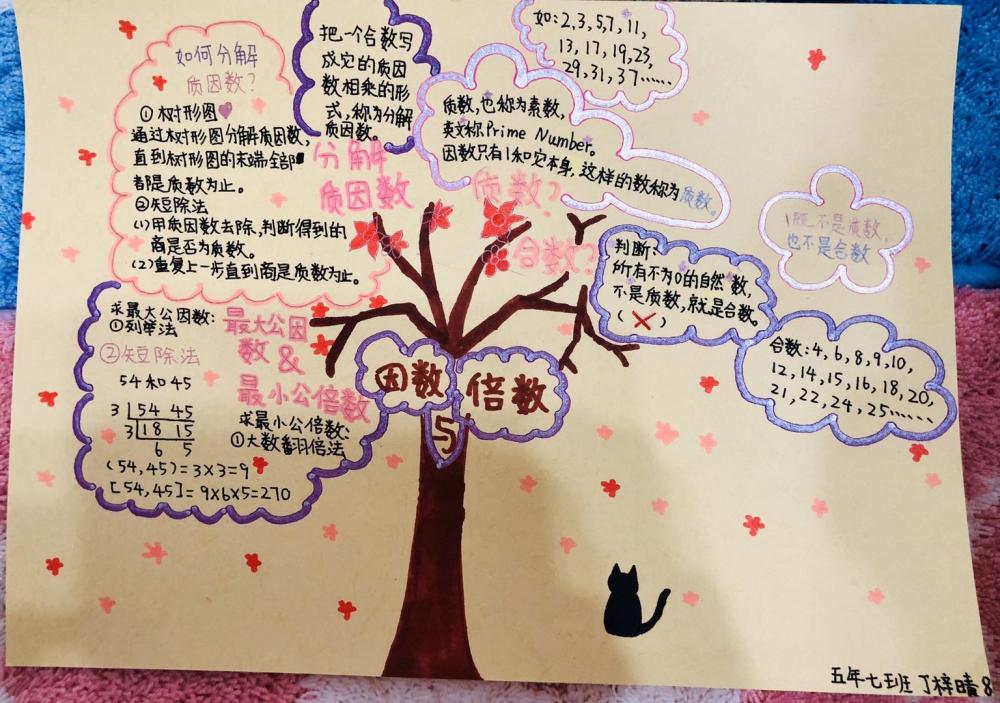 如何分解
质因数？
①树形图
通过树形图分解质因数，
直到树形图的末端全部
都是质数为止。
②短除法
(1)用质因数去除，判断得到的
商是否为质数。
(2)重复上一步直到商是质数为止。
把一个合数写
成它的质因
数相乘的形
式，称为分解
质因数。
分解
质因数
如：2,3,5,7,11,
13,17,19,23,
29,31,37……
质数，也称为素数，
英文称Prime Number。
因数只有1和它本身，这样的数称为质数。
质数？
1既不是质数，
也不是合数
合数？
判断：
所有不为0的自然数，
不是质数，就是合数。
(×)
合数：4,6,8,9,10,
12,14,15,16,18,20,
21,22,24,25……
求最大公因数：
①列举法
②短除法
54和45
3 54 45
3 18 15
6 5
(54,45)=3×3=9
[54,45]=9×6×5=270
最大公因
数&
最小公倍数
求最小公倍数：
①大数翻倍法
因数与倍数
五年七班 丁梓晴 8